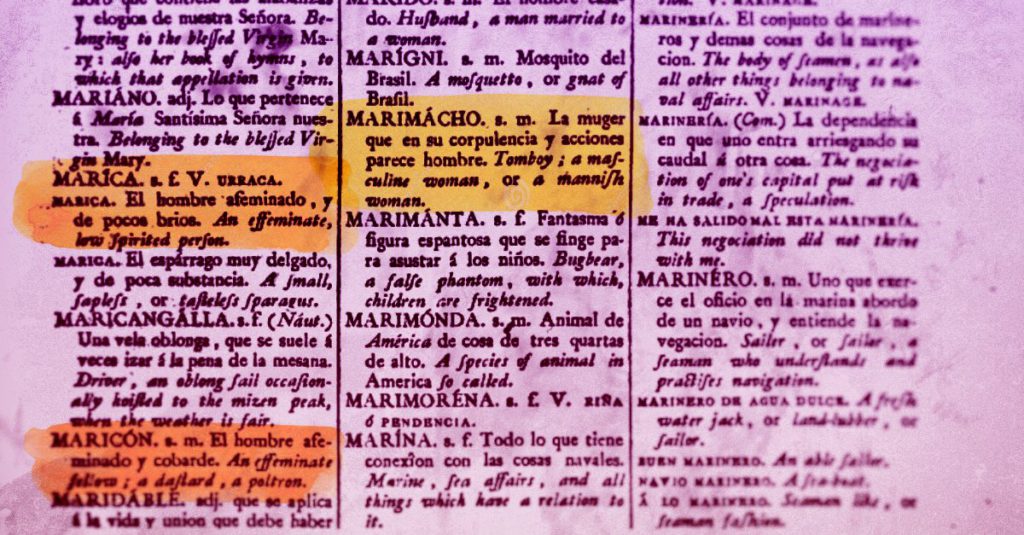 que contiene las alabanzas
y elogios de nuestra Señora. Be-
longing to the bleſſed Virgin Ma-
ry: alſo her book of hymns, to
which that appellation is given.
MARIÁNO. adj. Lo que pertenece
á María Santísima Señora nues-
tra. Belonging to the bleſſed Vir-
gin Mary.
MARÍCA. s. f. V. URRACA.
MARICA. El hombre afeminado, y
de pocos brios. An effeminate,
low ſpirited perſon.
MARICA. El espárrago muy delgado,
y de poca substancia. A ſmall,
ſapleſs, or taſteleſs ſparagus.
MARICANGÁLLA. s. f. (Náut.)
Una vela oblonga, que se suele á
veces izar á la pena de la mesana.
Driver, an oblong ſail occaſion-
ally hoiſted to the mizen peak,
when the weather is fair.
MARICÓN. s. m. El hombre afe-
minado y cobarde. An effeminate
fellow; a daſtard, a poltron.
MARIDÁBLE. adj. que se aplica
á la vida y union que debe haber
MARIDO. s. m. El hombre casa-
do. Huſband, a man married to
a woman.
MARÍGNI. s. m. Mosquito del
Brasil. A moſquetto, or gnat of
Braſil.
MARIMÁCHO. s. m. La muger
que en su corpulencia y acciones
parece hombre. Tomboy; a maſ-
culine woman, or a manniſh
woman.
MARIMÁNTA. s. f. Fantasma ó
figura espantosa que se finge pa-
ra asustar á los niños. Bugbear,
a falſe phantom, with which,
children are frightened.
MARIMÓNDA. s. m. Animal de
América de cosa de tres quartas
de alto. A ſpecies of animal in
America ſo called.
MARIMORÉNA. s. f. V. RIÑA
ó PENDENCIA.
MARÍNA. s. f. Todo lo que tiene
conexîon con las cosas navales.
Marine, ſea affairs, and all
things which have a relation to
it.
V. MARINAGE.
MARINERÍA. El conjunto de marine-
ros y demas cosas de la navega-
cion. The body of ſeamen, as alſo
all other things belonging to na-
val affairs. V. MARINAGE.
MARINERÍA. (Com.) La dependencia
en que uno entra arriesgando su
caudal á otra cosa. The negocia-
tion of one's capital put at riſk
in trade, a ſpeculation.
ME HA SALIDO MAL ESTA MARINERÍA.
This negociation did not thrive
with me.
MARINÉRO. s. m. Uno que exer-
ce el oficio en la marina abordo
de un navio, y entiende la na-
vegacion. Sailer, or ſailor, a
ſeaman who underſtands and
practiſes navigation.
MARINERO DE AGUA DULCE. A freſh
water jack, or land-lubber, or
ſailor.
BUEN MARINERO. An able ſailer.
NAVIO MARINERO. A ſea-boat.
Á LO MARINERO. Seaman like, or
ſeaman faſhion.